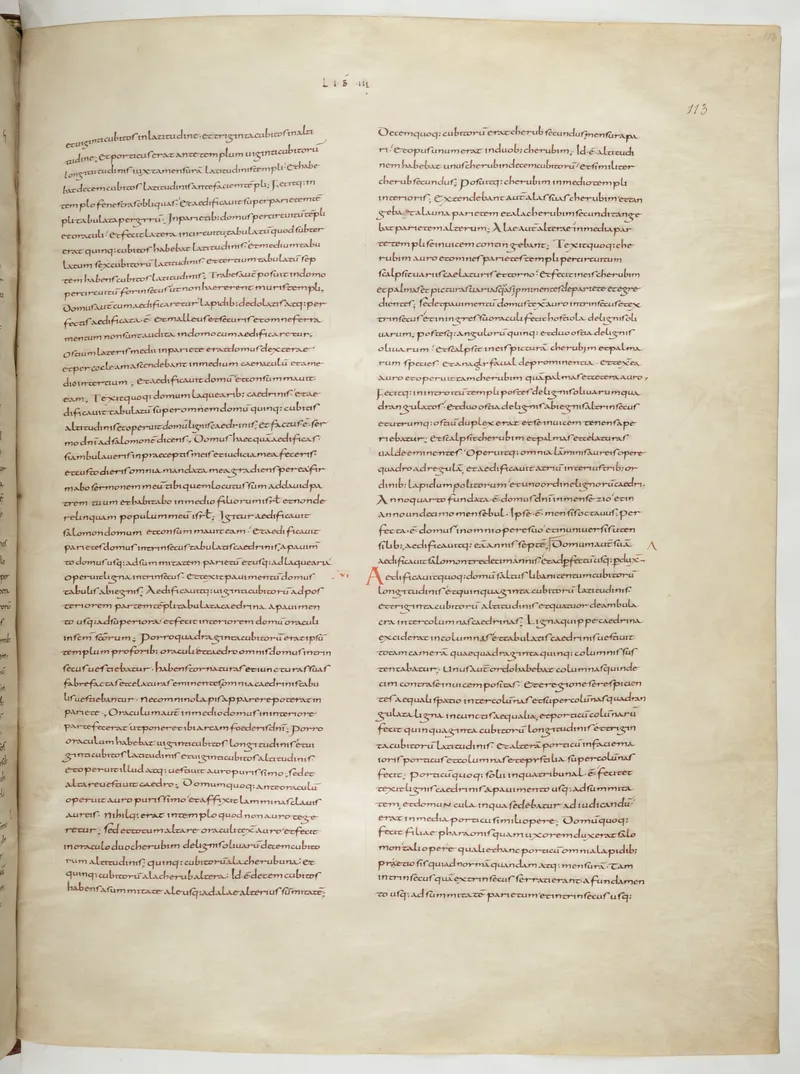 LIB III
113
et uiginti cubitos in latitudine· et triginta cubitos in alti
tudine; et porticus erat ante templum uiginti cubitorū
longitudinis iuxta mensurā latitudinis templi· Et habe
bat decem cubitos latitudinis ante faciem tēpli; Fecitq: in
templo fenestras obliquas· Et aedificauit super parietem tē
pli tabulata per gyrū; In parietib: domus per circuitū tēpli
et oraculi· et fecit latera in circuitu; tabulatū quod subter
erat quinq: cubitos habebat latitudinis· et medium tabu
latum sex cubitorū latitudinis et tertium tabulatū sep
tem habens cubitos latitudinis; Trabes autē posuit in domo
per circuitū forinsecus ut non haererent muris templi;
Domus autē cum aedificaretur lapidib: dedolatis atq: per
fectis aedificata ē· et malleus et securis et omne ferra
mentum non sunt audita in domo cum aedificaretur;
Ostium lateris medii in pariete erat domus dexterae
et per cocleam ascendebant in medium caenaculū et a me
dio in tertium; et aedificauit domū et consummauit
eam; Texit quoq: domum laquearib: caedrinis· et ae
dificauit tabulatū super omnem domū quinq: cubitis
altitudinis et operuit domū lignis caedrinis; et factus ē ser
mo dn̄i ad salomonem dicens; Domus haec quā aedificas
si ambulaueris in praeceptis meis et iudicia mea feceris·
et custodieris omnia mandata mea gradiens per ea fir
mabo sermonem meū tibi quem locutus sum ad dauid pa
trem tuum et habitabo in medio filiorum isrl̄ et non de
relinquam populum meū isrl̄; Igitur aedificauit
salomon domum et consummauit eam· et aedificauit
parietes domus intrinsecus tabulatis caedrinis; a pauim
to domus usq: ad summitatem parietū et usq: ad laquearia
operuit ligna intrinsecus· et texit pauimentū domus
tabulis abiegnis; Aedificauitq: uiginti cubitorū ad pos
teriorem partem tēpli tabulata caedrina a pauimen
to usq: ad superiora· et fecit interiorem domū oraculi
in scm̄ scōrum; Porro quadraginta cubitorū erat ipsū
templum pro forib: oraculi et caedro omnis domus intrin
secus uestiebatur· habens tornaturas et iuncturas suas
fabrefactas et celaturas eminentes omnia caedrinis tabu
lis uestiebantur· nec omnino lapis apparere poterat in
pariete; Oraculum autē in medio domus in interiore
parte fecerat ut poneret ibi arcam foederis dn̄i; Porro
oraculum habebat uiginti cubitos longitudinis et ui
ginti cubitos latitudinis et uiginti cubitos altitudinis
et operuit illud atq: uestiuit auro purissimo; sed et
altare uestiuit caedro; Domum quoq: ante oraculū
operuit auro purissimo et affixit lamminas clauis
aureis· Nihilq: erat in templo quod non auro tege
retur; sed et totum altare oraculi texit auro et fecit
in oraculo duo cherubim de lignis oliuarū decem cubito
rum altitudinis; quinq: cubitorū ala cherub una· et
quinq: cubitorū ala cherub altera· Id ē decem cubitos
habens a summitate alae usq: ad alae alterius sūmitatē;
Decem quoq: cubitorū erat cherub secundus; mensura pa
ri· et opus unum erat in duob: cherubim; Id ē altitudi
nem habebat unus cherub in decem cubitorū· et similiter
cherub secundus; Posuitq: cherubim in medio templi
interioris; Extendebant autē alas suas cherubim et tan
gebat ala una parietem et ala cherub secundi tange
bat parietem alterum; Alae autē alterae in media par
te templi se inuicem contingebant; Texit quoq: che
rubim auro et omnes parietes templi per circuitum
scalpsit uariis caelaturis et torno· et fecit in eis cherubim
et palmas et picturas uarias q̄si p̄minentes de pariete et egre
dientes; sed et pauimentū domus texit auro intrinsecus et ex
trinsecus et in ingressu oraculi fecit hostiola de lignis oli
uarum; postesq: angulorū quinq: et duo ostia de lignis
oliuarum· et scalpsit in eis picturā cherubim et palma
rum species et anaglifa ualde prominentia· et texit ea
auro et operuit tam cherubim quā palmas et cetera auro·
Fecitq: in introitu templi postes de lignis oliuarum qua
drangulatos· et duo ostia de lignis abiegnis alterinsecus
et utrumq: ostiū duplex erat et se inuicem tenens ape
riebatur; et scalpsit cherubim et palmas et celaturas
ualde eminentes· Operuitq: omnia lāminis aureis opere
quadro ad regulā; et aedificauit atriū interius trib: or
dinib: lapidum politorum et uno ordine lignorū caedri·
Anno quarto fundata ē domus dn̄i in mense zio et in
anno undecimo mense bul· Ipse ē mensis octauus; per
fecta ē domus in omni opere suo et in uniuersis uten
silib:; aedificauitq: eā annis septē; Domum autē suā
aedificauit salomon tredecim annis et ad pfectū usq: pduxit
·VI·
Aedificauit quoq: domū saltus libani centum cubitorū
longitudinis et quinquaginta cubitorū latitudinis
et triginta cubitorū altitudinis et quattuor deambula
cra inter columnas caedrinas; Ligna quippe caedrina
exciderat in columnas et tabulatis caedrinis uestiuit
totam camerā quae quadraginta quinq: columnis sus
tentabatur; Unus autē ordo habebat columnas quinde
cim contra se inuicem positas· Et e regione se respicien
tes aequali spatio inter colūnas et super colūnas quadran
gulata ligna in cunctis aequalia; et porticū colūnarū
fecit quinquaginta cubitorū longitudinis et trigin
ta cubitorū latitudinis· et alterā porticū in facie ma
ioris porticus et columnas et epistilia super colūnas
fecit; Porticū quoq: solii in qua tribunal ē fecit et
texit lignis caedrinis a pauimento usq: ad summita
tem; et domuncula in qua sedebatur ad iudicandū
erat in media porticu simili opere; Domū quoq:
fecit filiae pharaonis quam uxorem duxerat salo
mon tali opere quali et hanc porticū omnia lapidib:
praetiosis qui ad normā quandam atq: mensurā· Tam
intrinsecus quā extrinsecus serrati erant a fundamen
to usq: ad summitatē parietum et intrinsecus usq: